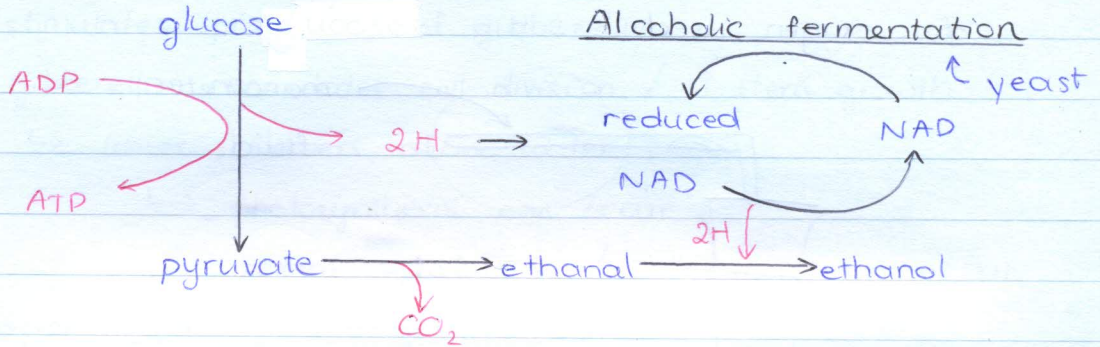 glucose
Alcoholic fermentation
yeast
ADP
2H
reduced
NAD
NAD
ATP
2H
pyruvate
ethanal
ethanol
CO₂